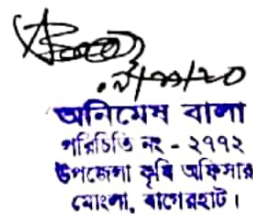 অনিমেষ বালা
পরিচিতি নং - ২৭৭২
উপজেলা কৃষি অফিসার
মোংলা, বাগেরহাট।